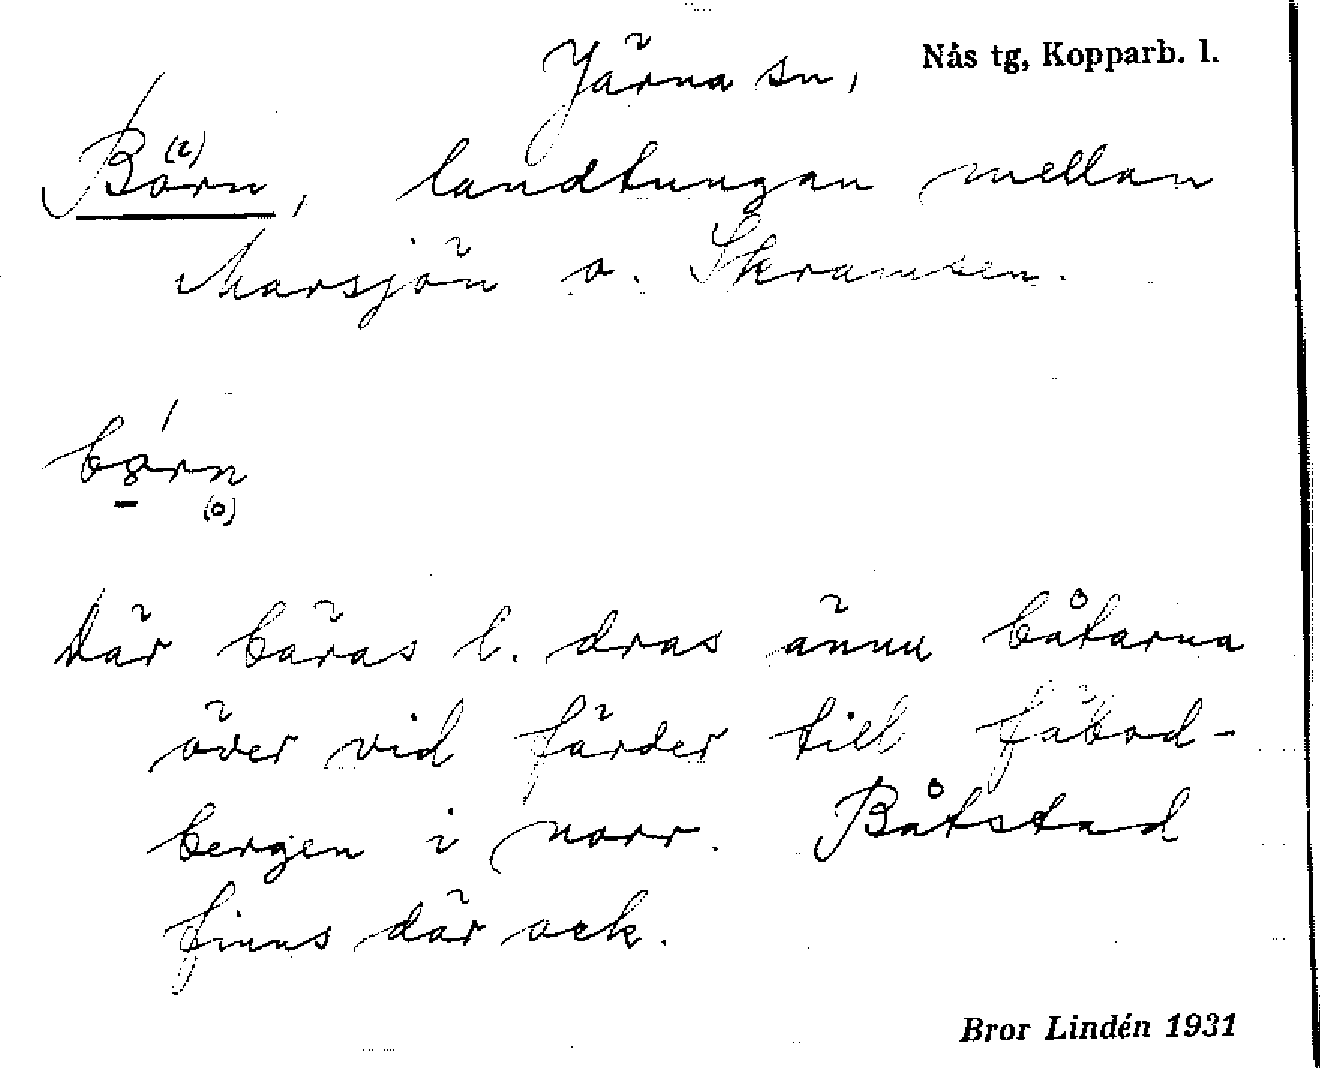 Järna sn, Nås tg, Kopparb. l.
Börn, landtungan mellan
Marsjön o. Skramsen.
börn
(o)
Där bäras l. dras ännu båtarna
över vid färder till fäbod-
bergen i norr. Båtstad
finns där ock.
Bror Lindén 1931